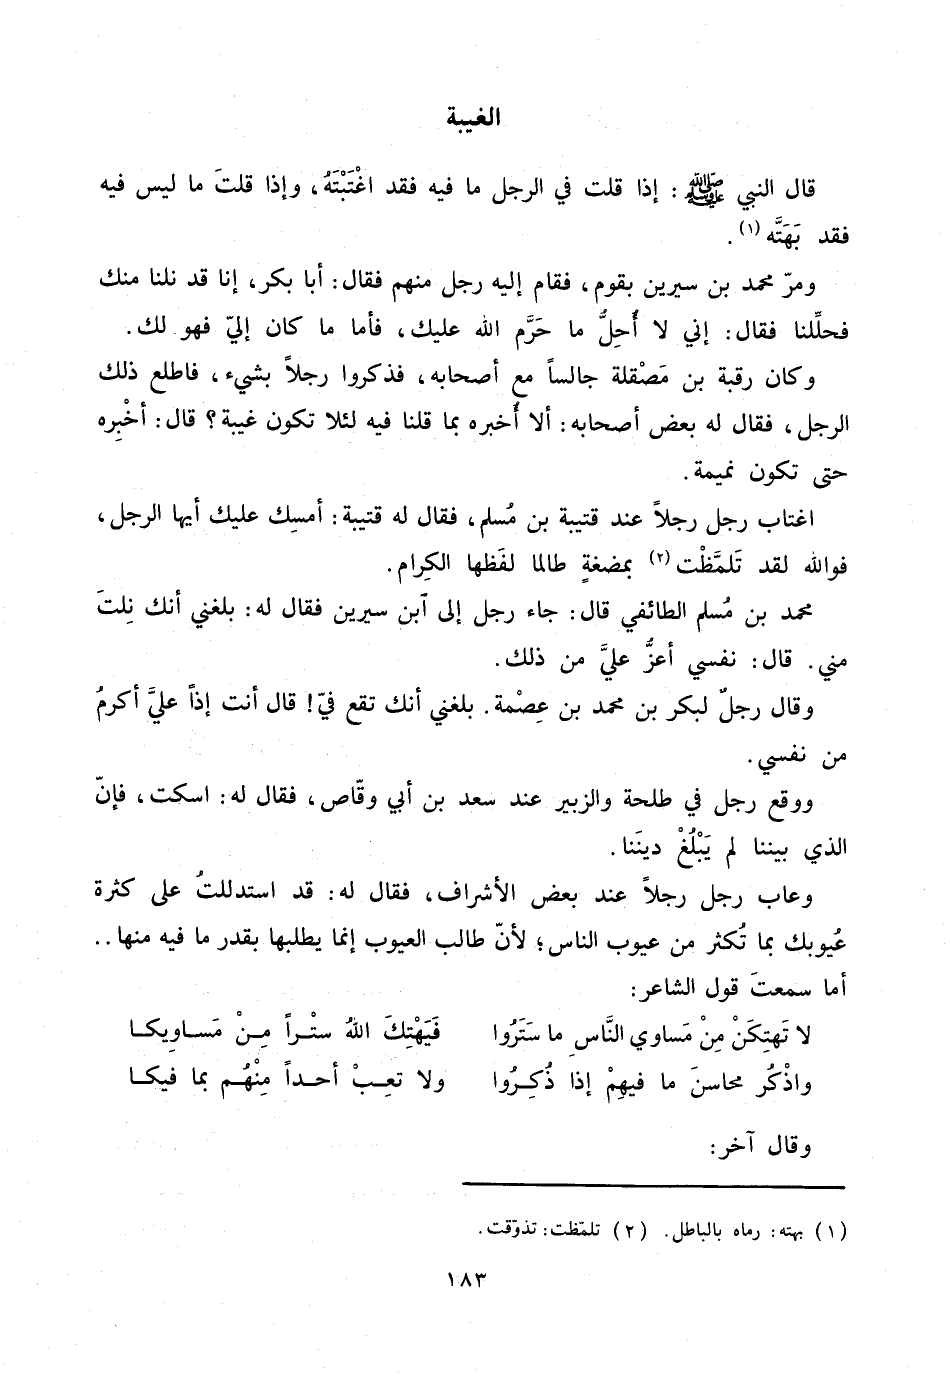 الغيبة
قال النبي ﷺ: إذا قلت في الرجل ما فيه فقد اغْتَبْتَهُ، وإذا قلتَ ما ليس فيه
فقد بَهَتَّه (١).
ومرّ محمد بن سيرين بقوم، فقام إليه رجل منهم فقال: أبا بكر، إنا قد نلنا منك
فحلِّلنا فقال: إني لا أُحِلُّ ما حَرَّم الله عليك، فأما ما كان إليّ فهو لك.
وكان رقبة بن مَصْقلة جالساً مع أصحابه، فذكروا رجلاً بشيء، فاطلع ذلك
الرجل، فقال له بعض أصحابه: ألا أُخبره بما قلنا فيه لئلا تكون غيبة؟ قال: أخْبِره
حتى تكون نميمة.
اغتاب رجل رجلاً عند قتيبة بن مُسلم، فقال له قتيبة: أمسِك عليك أيها الرجل،
فوالله لقد تَلمَّظْت (٢) بمضغةٍ طالما لفَظها الكِرام.
محمد بن مُسلم الطائفي قال: جاء رجل إلى ٱبن سيرين فقال له: بلغني أنك نِلتَ
مني. قال: نفسي أعزُّ عليَّ من ذلك.
وقال رجلٌ لبكر بن محمد بن عِصْمة. بلغني أنك تقع فيّ! قال أنت إذاً عليَّ أكرمُ
من نفسي.
ووقع رجل في طلحة والزبير عند سعد بن أبي وقّاص، فقال له: اسكت، فإنّ
الذي بيننا لم يَبْلُغْ دينَنا.
وعاب رجل رجلاً عند بعض الأشراف، فقال له: قد استدللتُ على كثرة
عُيوبك بما تُكثر من عيوب الناس؛ لأنّ طالب العيوب إنما يطلبها بقدر ما فيه منها..
أما سمعتَ قول الشاعر:
لا تَهتِكَنْ مِنْ مَساوي النَّاسِ ما سَتَرُوا فَيَهْتِكَ اللهُ ستْـراً مِـنْ مَسـاوِيكـا
واذْكُر محاسنَ ما فيهِمْ إذا ذُكِـرُوا ولا تعِـبْ أحـداً مِنْهُـم بما فيكـا
وقال آخر:
(١) بهته: رماه بالباطل. (٢) تلمّظت: تذوّقت.
١٨٣